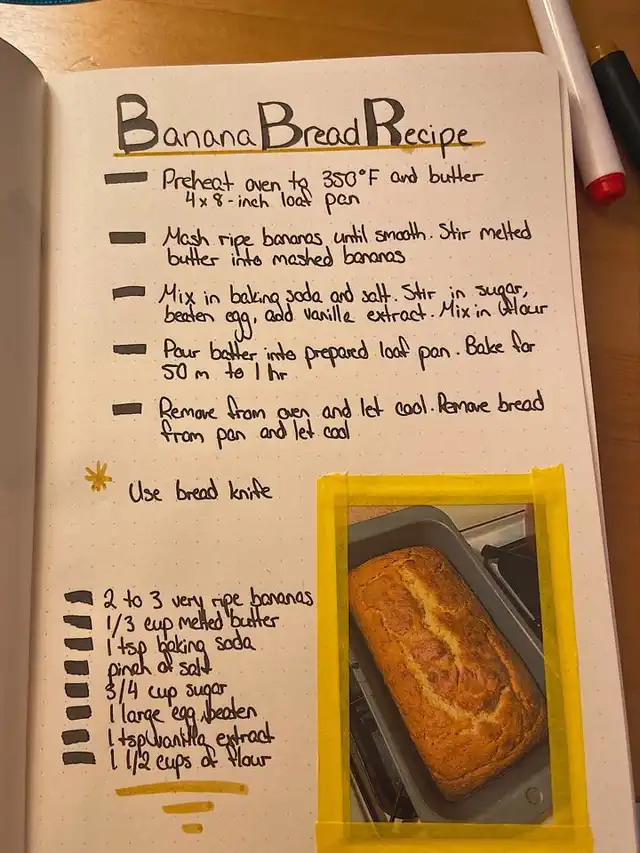 Banana Bread Recipe
Preheat oven to 350°F and butter
4x8-inch loaf pan
Mash ripe bananas until smooth. Stir melted
butter into mashed bananas
Mix in baking soda and salt. Stir in sugar,
beaten egg, add vanille extract. Mix in flour
Pour batter into prepared loaf pan. Bake for
50 m to 1 hr
Remove from oven and let cool. Remove bread
from pan and let cool
Use bread knife
2 to 3 very ripe bananas
1/3 cup melted butter
1 tsp baking soda
pinch of salt
3/4 cup sugar
1 large egg, beaten
1 tsp vanilla extract
1 1/2 cups of flour